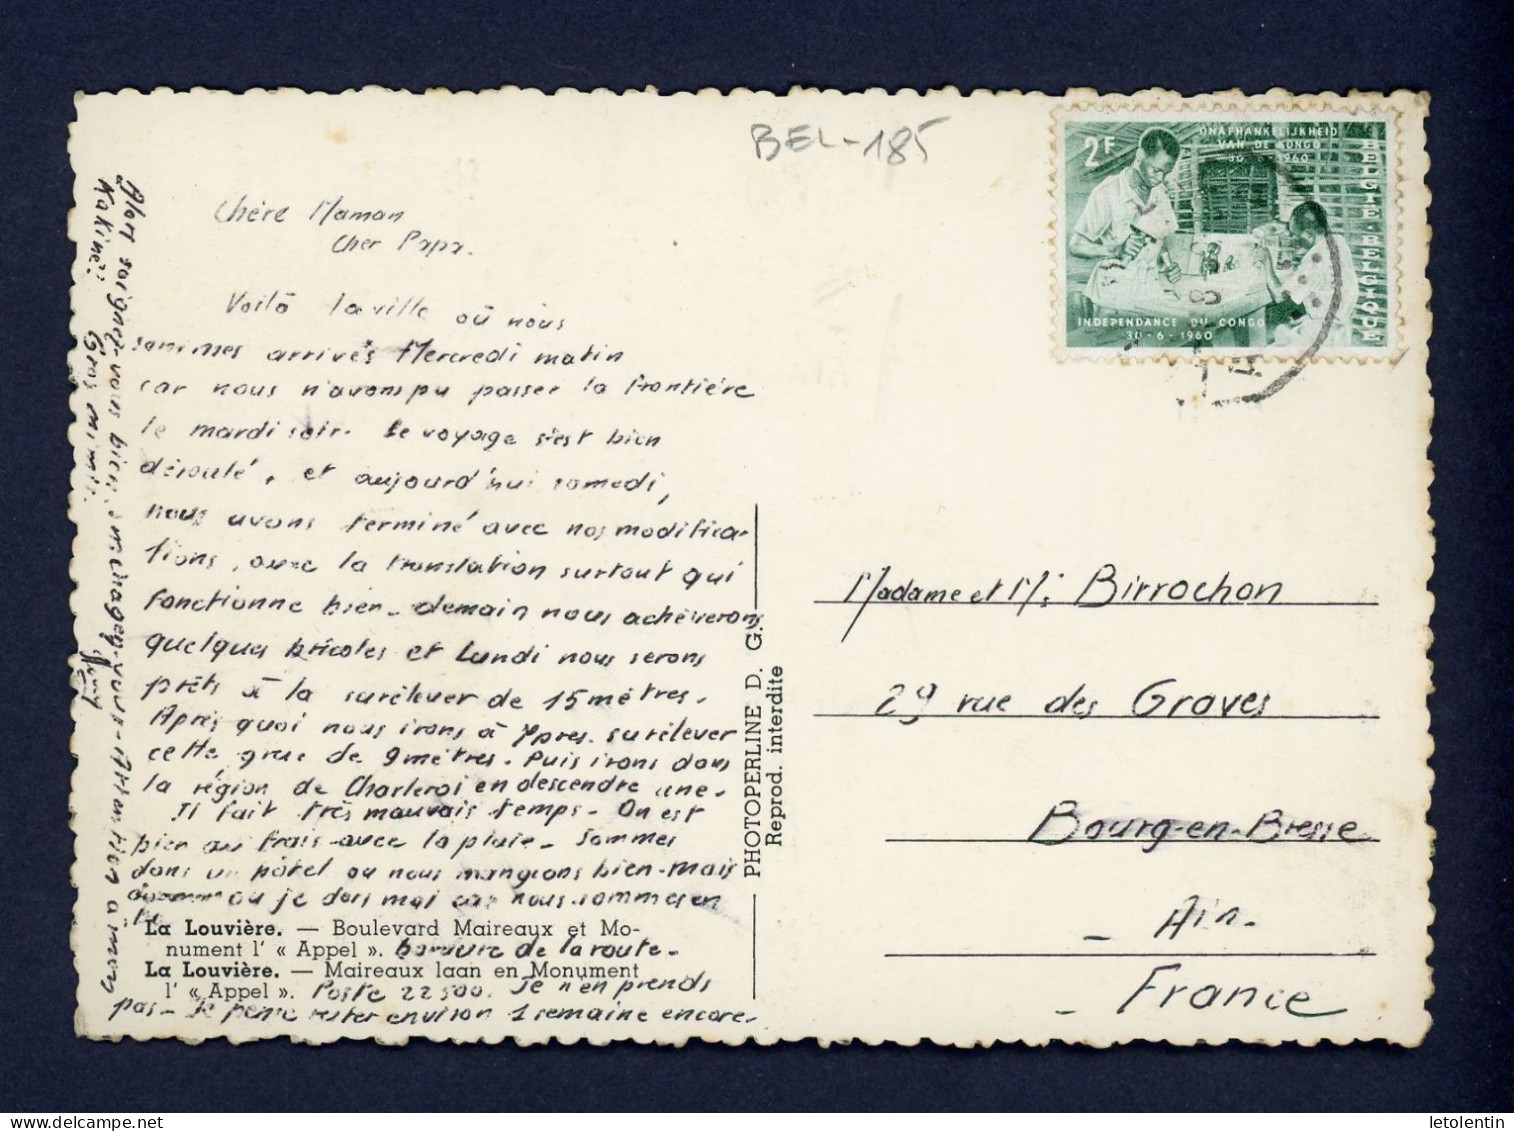 BEL-185
2F
ONAFHANKELIJKHEID
VAN DE KONGO
30-6-1960
BELGIE-BELGIQUE
INDEPENDANCE DU CONGO
30-6-1960
Chère Maman
Cher Papa.
Voilà la ville où nous
sommes arrivés Mercredi matin
car nous n'avons pu passer la frontière
le mardi soir. Le voyage s'est bien
déroulé, et aujourd'hui samedi,
nous avons terminé avec nos modifica-
tions, avec la translation surtout qui
fonctionne bien. demain nous achèverons
quelques bricoles et Lundi nous serons
prêts à la surélever de 15 mètres.
Après quoi nous irons à Ypres surélever
cette grue de 9 mètres. Puis irons dans
la région de Charleroi en descendre une.
Il fait très mauvais temps. On est
bien au frais avec la pluie. Sommes
dans un hôtel où nous mangeons bien. Mais
où je dors mal car nous sommes en
La Louvière. — Boulevard Maireaux et Mo-
nument l' « Appel ». bordure de la route.
La Louvière. — Maireaux laan en Monument
l' « Appel ». Poste 22500. Je n'en prends
pas. Je pense rester environ 1 semaine encore.
Alors soignez-vous bien, ménagez-vous. Attention à mon
Kakine!
Gros mimis.
PHOTOPERLINE D. G.
Reprod. interdite
Madame et M. Birrochon
29 rue des Graves
Bourg-en-Bresse
- Ain.
- France
letolentin